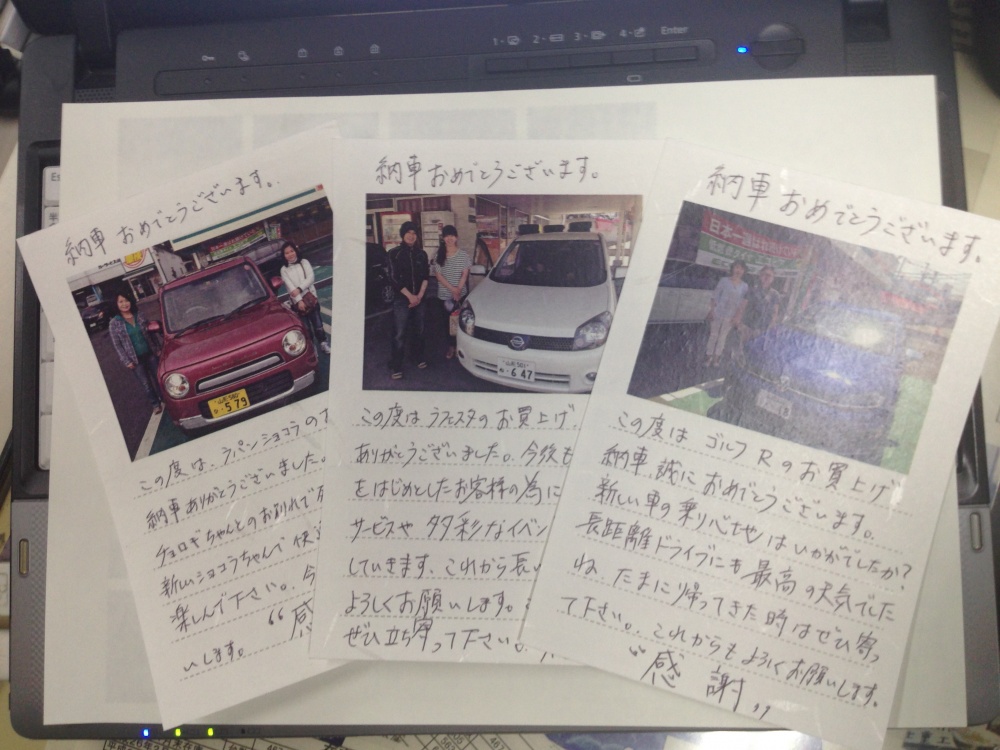 納車 おめでとうございます。
579
この度は、ラパンショコラの
納車ありがとうございました。
チョロギちゃんとのお別れで
新しいショコラちゃんで 快
楽しんで下さい。今
いします。
“感
納車 おめでとうございます。
647
この度は ラフェスタの お買上げ
ありがとうございました。今後も
をはじめとしたお客様の為に
サービスや 多彩なイベン
していきます、これから長い
よろしくお願いします。
ぜひ立ち寄って下さい。
納車 おめでとうございます。
日本一
この度は ゴルフ Rのお買上げ
納車 誠に おめでとうございます。
新しい車の乗り心地は いかがでしたか?
長距離ドライブにも 最高の天気でした
ね、たまに帰ってきた時はぜひ寄っ
て下さい。これからもよろしくお願いします。
“感謝”
1-
2-
3-
4-
Enter